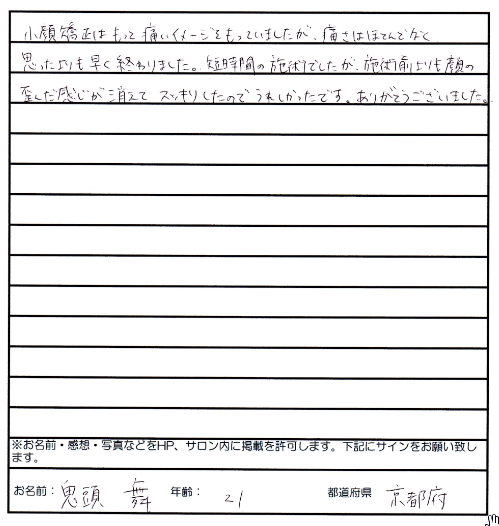 小顔矯正はもっと痛いイメージをもっていましたが、痛さはほとんどなく
思ったよりも早く終わりました。短時間の施術でしたが、施術前よりも顔の
歪んだ感じが消えて スッキリしたのでうれしかったです。ありがとうございました。
※お名前・感想・写真などをHP、サロン内に掲載を許可します。下記にサインをお願い致し
ます。
お名前：鬼頭 舞 年齢： 21 都道府県 京都府